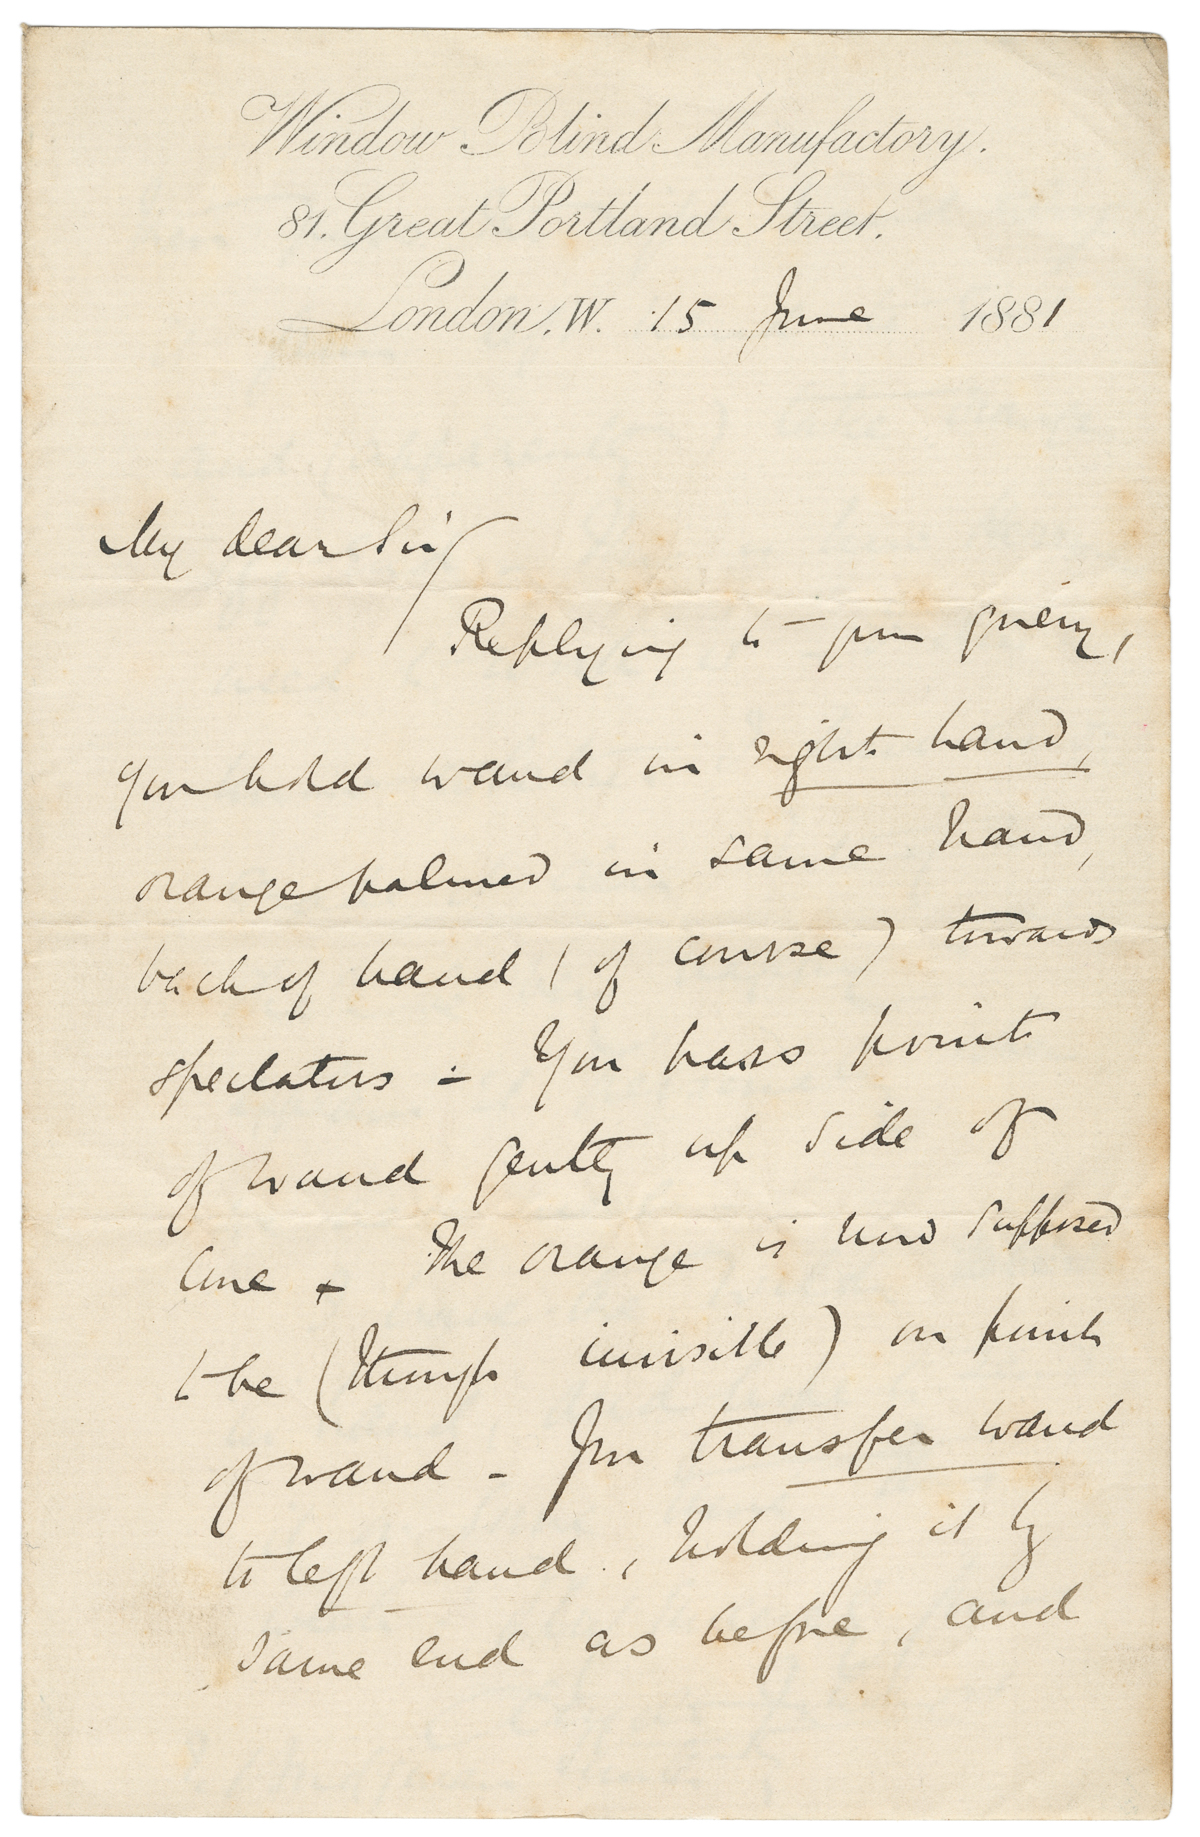 Window Blind Manufactory.
81. Great Portland Street.
London. W. 15 June 1881
My dear Sir
Replying to your query,
you hold wand in right hand,
orange palmed in same hand,
back of hand (of course) towards
spectators - You pass point
of wand gently up side of
Cone + The orange is now supposed
to be (though invisible) on point
of wand - You transfer wand
to left hand, holding it by
same end as before, and